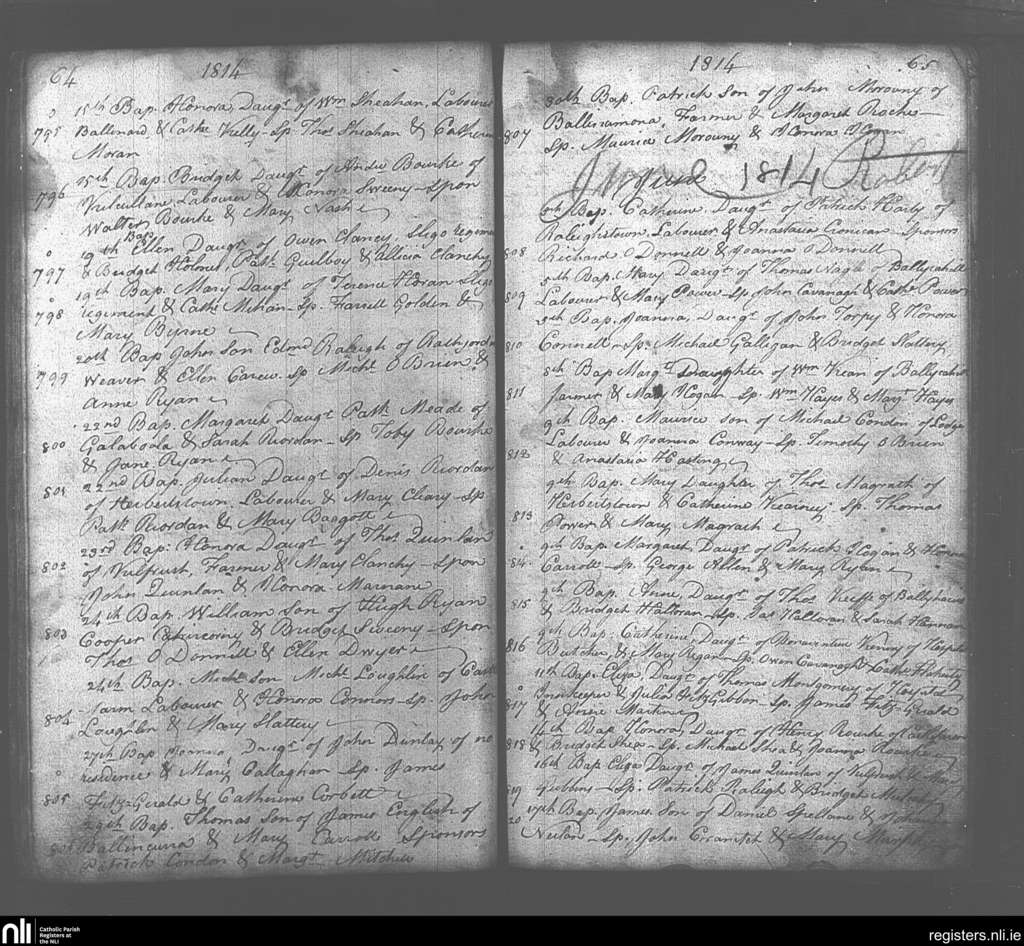 64
1814
15th Bap. Honora, Daugr. of Wm Sheahan, Labourer
795 Ballinard & Cathe Kelly - Sp. Thos Shiahan & Catherine
Moran
15th Bap. Bridget Daugr. of Andw Bourke of
796 Labourer & Honora Sweeny - Spon
Walter Bourke & Mary Nash
19th Bap. Ellen Daugr. of Owen Clancy, Sligo regiment
797 & Bridget Holmes, Patk Guilboy & Allicia Clanchy
19th Bap. Mary Daugr. of Terence Horan Sligo
798 regiment & Cathe Mehan - Sp. Farrell Golden &
Mary Byrne
20th Bap John Son Edmd Raleigh of Rathjordan
799 Weaver & Ellen Carew - Sp Michl O Brien &
Anne Ryan
22nd Bap. Margaret Daugr. Patk Meade of
800 Galaboola & Sarah Riordan - Sp Toby Bourke
& Jane Ryan
22nd Bap. Julian Daugr. of Denis Riordan
801 of Herbertstown - Labourer & Mary Cleary - Sp
Patk Riordan & Mary Baggott
23rd Bap. Honora Daugr. of Thos Quinlan
802 of Farmer & Mary Clanchy - Spon
John Quinlan & Honora Marnane
24th Bap. William Son of Hugh Ryan
803 Cooper & Bridget Sweeny - Spon
Thos O Donnill & Ellen Dwyer
24th Bap. Michl Son Michl Loughlin of Castle
804 Farm Labourer & Honora Connors - Sp. John
Loughlin & Mary Slattery
27th Bap Joanna, Daugr. of John Dunlay of no
residence & Mary Callaghan - Sp. James
805 Fitz-Gerald & Catherine Corbett
29th Bap. Thomas Son of James English of
806 Ballincurra & Mary Carroll Sponsors
Patrick Condon & Margt. Mitchell
1814
65
30th Bap. Patrick Son of John Morouny of
807 Ballinamona, Farmer & Margaret Roche -
Sp. Maurice Morouny & Honora Hogan
June 1814 Robert
Bap. Catherine, Daugr. of Patrick Harty of
Raleighstown, Labourer & Anastasia Cronican - Sponsors
808 Richard O Donnell & Joanna O Donnell
5th Bap. Mary Daugr. of Thomas Nagh of Ballycahill
809 Labourer & Mary Power - Sp John Cavanagh & Cathe Power
Bap. Joanna, Daugr. of John Torpy & Honora
810 Connell - Sp. Michael Galligan & Bridget Slattery
8th Bap Margt Daughter of Wm Kean of Ballycahill
811 farmer & Mary Hogan - Sp. Wm Hayes & Mary Hayes
9th Bap. Maurice son of Michael Condon of Lodge
Labourer & Joanna Conway - Sp. Timothy O Brien
812 & Anastasia Hastings
9th Bap. Mary Daughter of Thos Magrath of
Herbertstown & Catherine Kearney - Sp. Thomas
813 Power & Mary Magrath
9th Bap. Margaret, Daugr. of Patrick Hogan & Honora
814 Carroll - Sp. George Allen & Mary Ryan
9th Bap. Anne, Daugr. of Thos Keeffe of
815 & Bridget Halloran - Sp. Jas Halloran & Sarah
9th Bap. Catherine, Daugr. of Bonaventure of Hospital
816 Butcher, & Mary Regan - Sp. Owen Cavanagh & Cathe
11th Bap. Eliza, Daugr. of Thomas Montgomery of Hospital
Innkeeper & Julia Fitz Gibbon - Sp. James Fitz-Gerald
817 & Anne Martin
14th Bap. Honora, Daugr. of Henry Rourke of Castle Farm
818 & Bridget Shea - Sp. Michael Shea & Joanna Rourke
16th Bap. Eliza Daugr. of James Quinlan of &
819 Gubbins - Sp. Patrick Raleigh & Bridget
17th Bap. James Son of Daniel Spellane &
820 Neilan - Sp. John & Mary Murphy
nli
Catholic Parish
Registers at
the NLI
registers.nli.ie